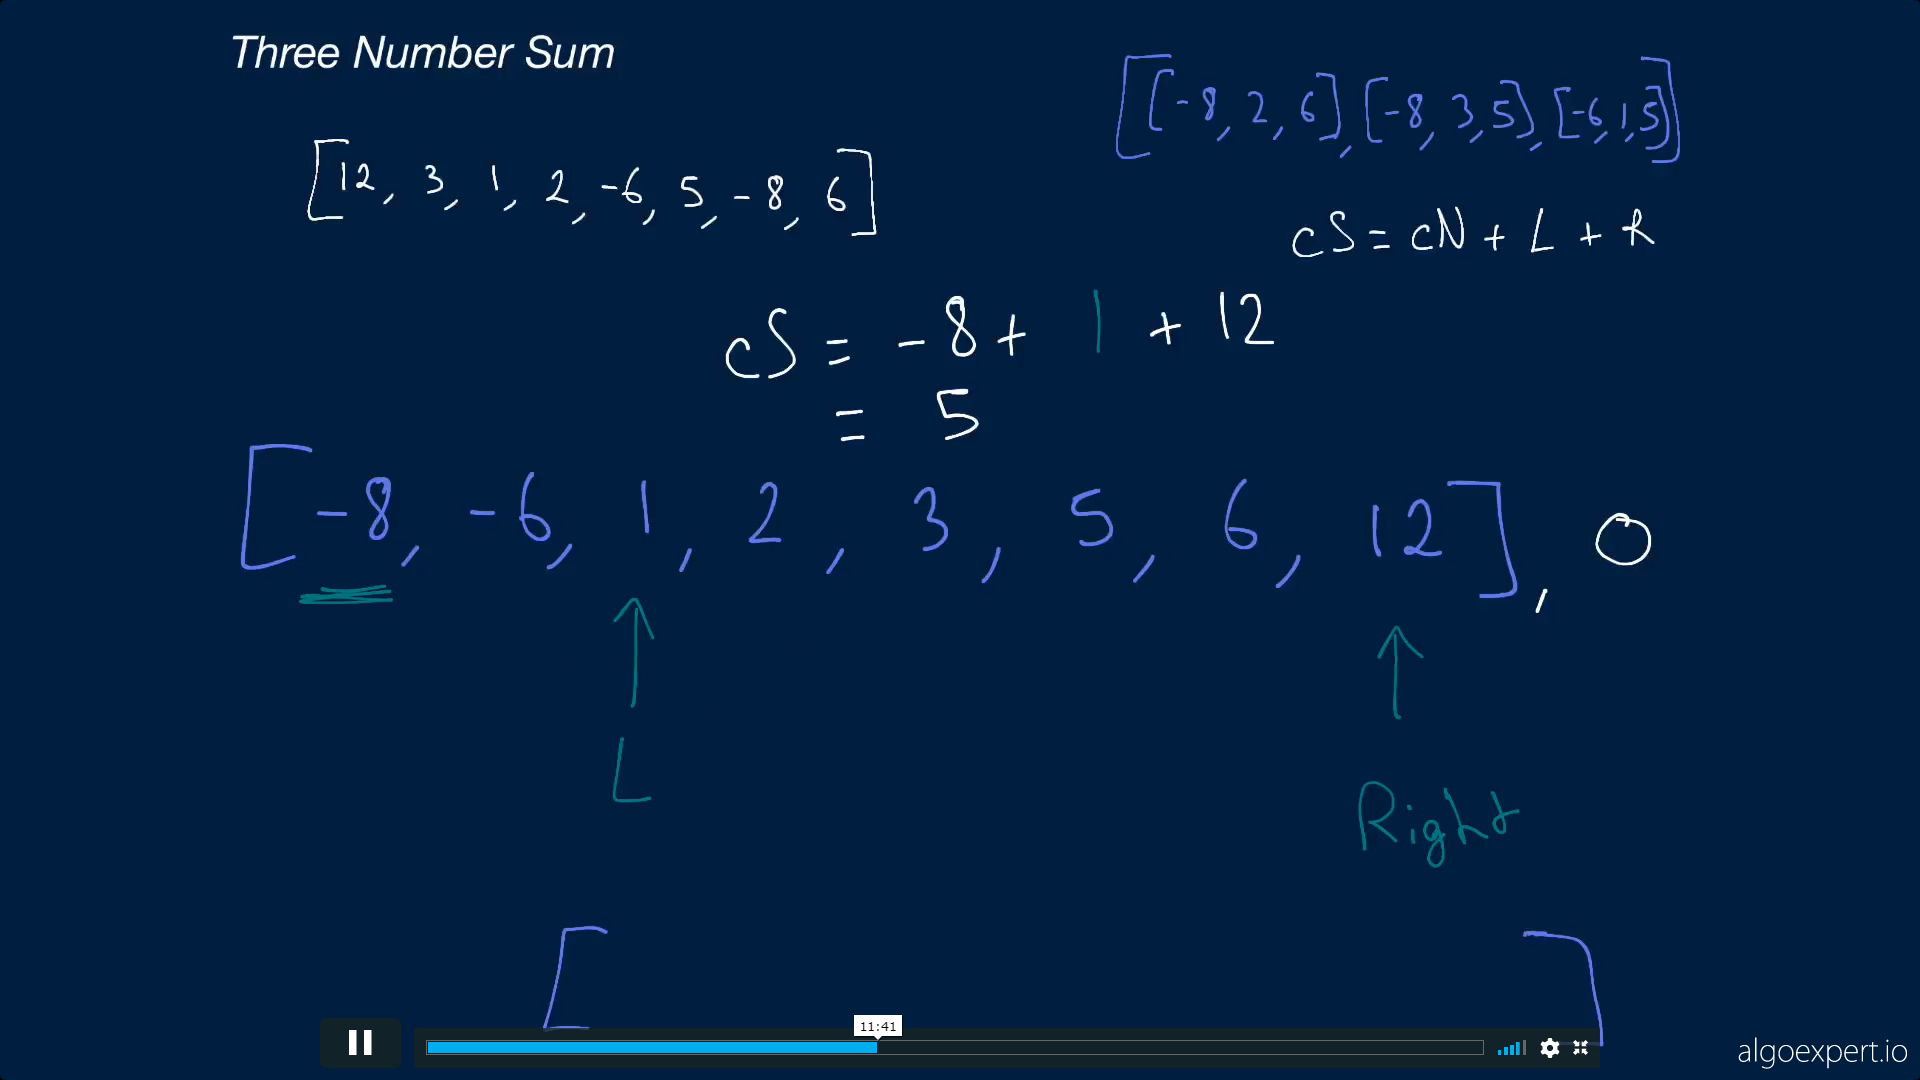 Three Number Sum
[[-8, 2, 6], [-8, 3, 5], [-6, 1, 5]]
[12, 3, 1, 2, -6, 5, -8, 6]
cS = cN + L + R
cS = -8 + 1 + 12
= 5
[-8, -6, 1, 2, 3, 5, 6, 12], 0
L
Right
[ ]
11:41
algoexpert.io